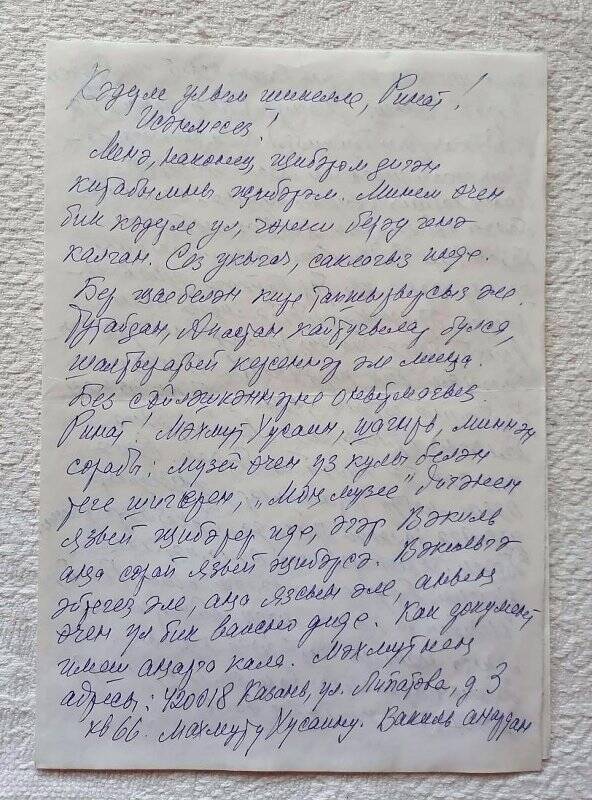 Кадерле улым шикелле, Ринат!
Исәнмесез!
Менә, наконец, җибәрәм дигән
китабымны җибәрәм. Минем өчен
бик кадерле ул, чөнки берәү генә
калган. Сез укыгач, саклагыз инде.
Бер җае белән кире тапшырырсыз әле.
Тутабдан, Апастан кайтучылар булса,
шалтыратый күрсеннәр әле миңа.
Без сөйләшкәннәрне онытмагыз.
Ринат! Мәхмүт Хусаин, шагыйрь, миннән
сорады: музей өчен үз кулы белән
теге шигырен, „Моң музее" дигәнен
язып җибәрер иде, әгәр Вәкиль
аңа сорап язып җибәрсә. Вәкильгә
әйтегез әле, аңа язсын әле, аның
өчен ул бик важно диде. Как документ
имеш аңарга кала. Мәхмүтнең
адресы: 420018 Казань, ул. Липатова, д 3
кв 66. Махмуту Хусаину. Вакиль анардан